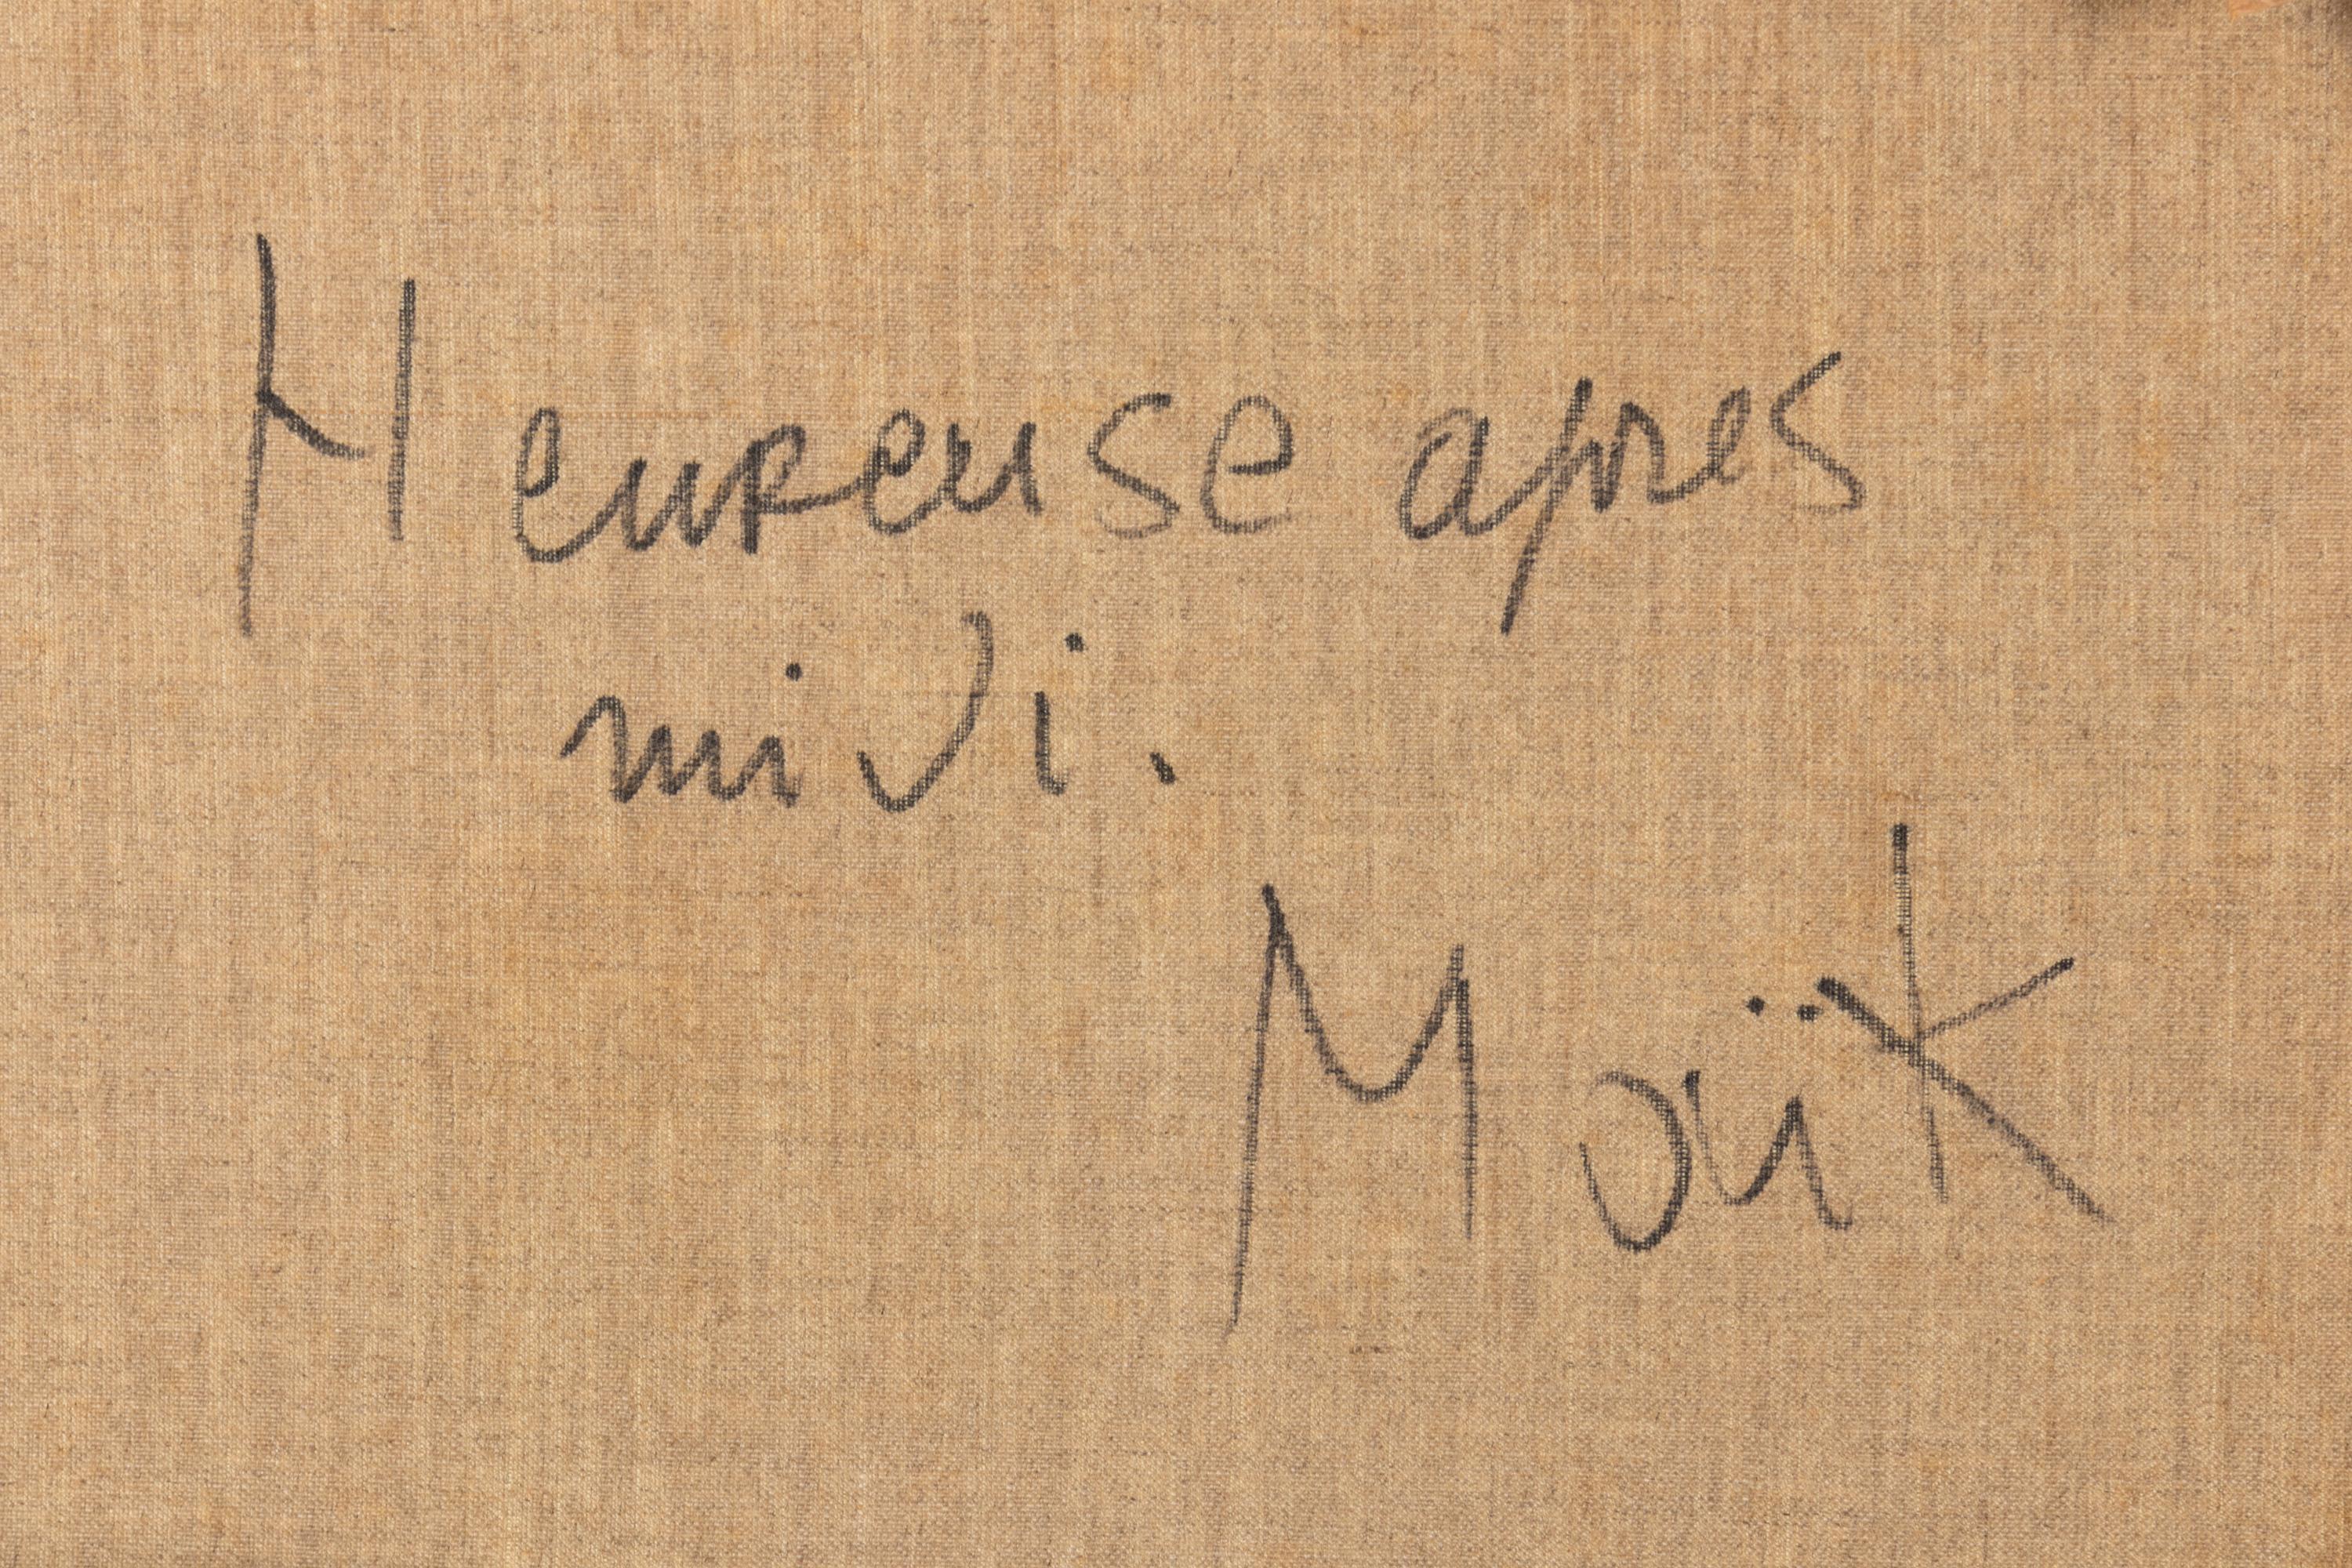 Heureuse apres
midi.
Moïk